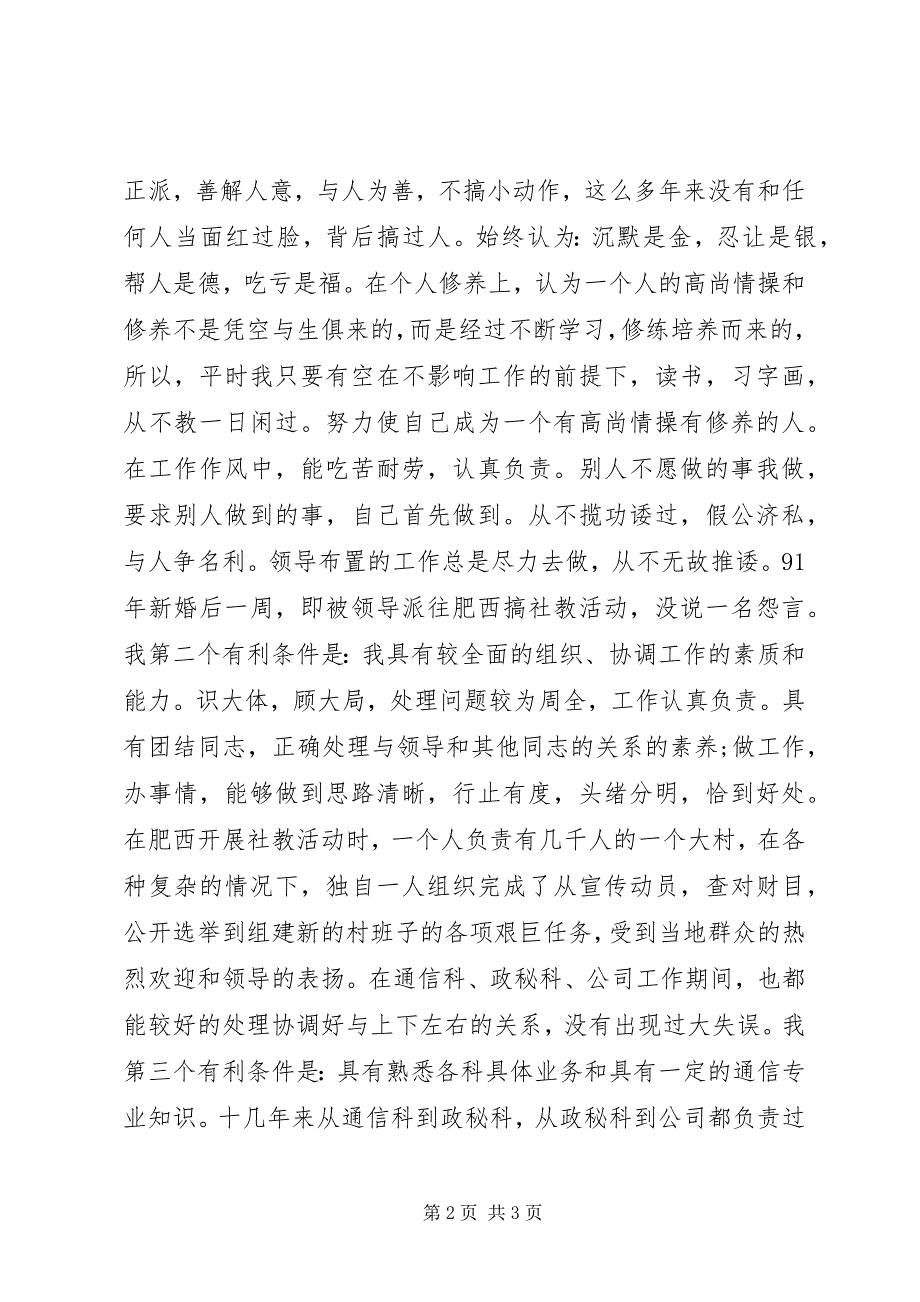 正派，善解人意，与人为善，不搞小动作，这么多年来没有和任
何人当面红过脸，背后搞过人。始终认为：沉默是金，忍让是银，
帮人是德，吃亏是福。在个人修养上，认为一个人的高尚情操和
修养不是凭空与生俱来的，而是经过不断学习，修练培养而来的，
所以，平时我只要有空在不影响工作的前提下，读书，习字画，
从不教一日闲过。努力使自己成为一个有高尚情操有修养的人。
在工作作风中，能吃苦耐劳，认真负责。别人不愿做的事我做，
要求别人做到的事，自己首先做到。从不揽功诿过，假公济私，
与人争名利。领导布置的工作总是尽力去做，从不无故推诿。91
年新婚后一周，即被领导派往肥西搞社教活动，没说一名怨言。
我第二个有利条件是：我具有较全面的组织、协调工作的素质和
能力。识大体，顾大局，处理问题较为周全，工作认真负责。具
有团结同志，正确处理与领导和其他同志的关系的素养;做工作，
办事情，能够做到思路清晰，行止有度，头绪分明，恰到好处。
在肥西开展社教活动时，一个人负责有几千人的一个大村，在各
种复杂的情况下，独自一人组织完成了从宣传动员，查对财目，
公开选举到组建新的村班子的各项艰巨任务，受到当地群众的热
烈欢迎和领导的表扬。在通信科、政秘科、公司工作期间，也都
能较好的处理协调好与上下左右的关系，没有出现过大失误。我
第三个有利条件是：具有熟悉各科具体业务和具有一定的通信专
业知识。十几年来从通信科到政秘科，从政秘科到公司都负责过
第 2 页 共 3 页